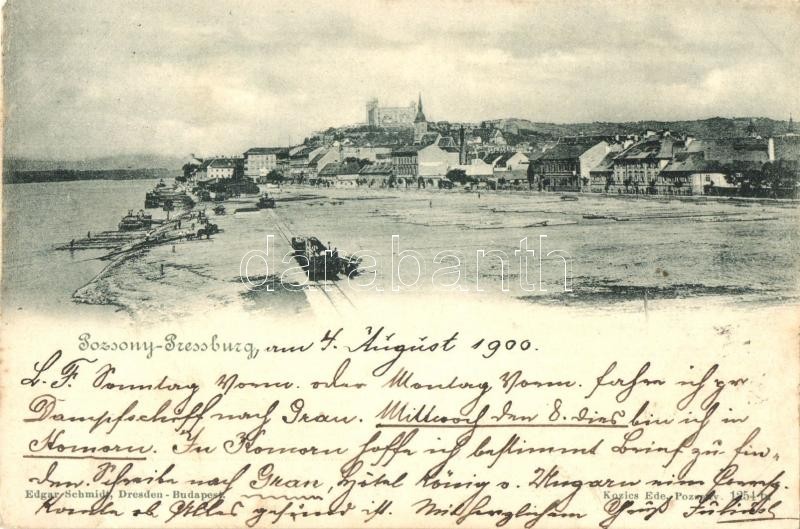 darabanth
Pozsony-Pressburg, am 4. August 1900.
L. F. Sonntag Vorm. oder Montag Vorm. fahre ich pr
Dampfschiff nach Gran. Mittwoch den 8. dies bin ich in
Komorn. In Komorn hoffe ich bestimmt Brief zu fin-
den. Schreibe nach Gran, Hôtel König v. Ungarn eine Corresp.
Edgar Schmidt, Dresden - Budapest.
Kozics Ede, Pozsony. 1254
Karte ob Alles gesund ist. Mit herzlichem Gruß